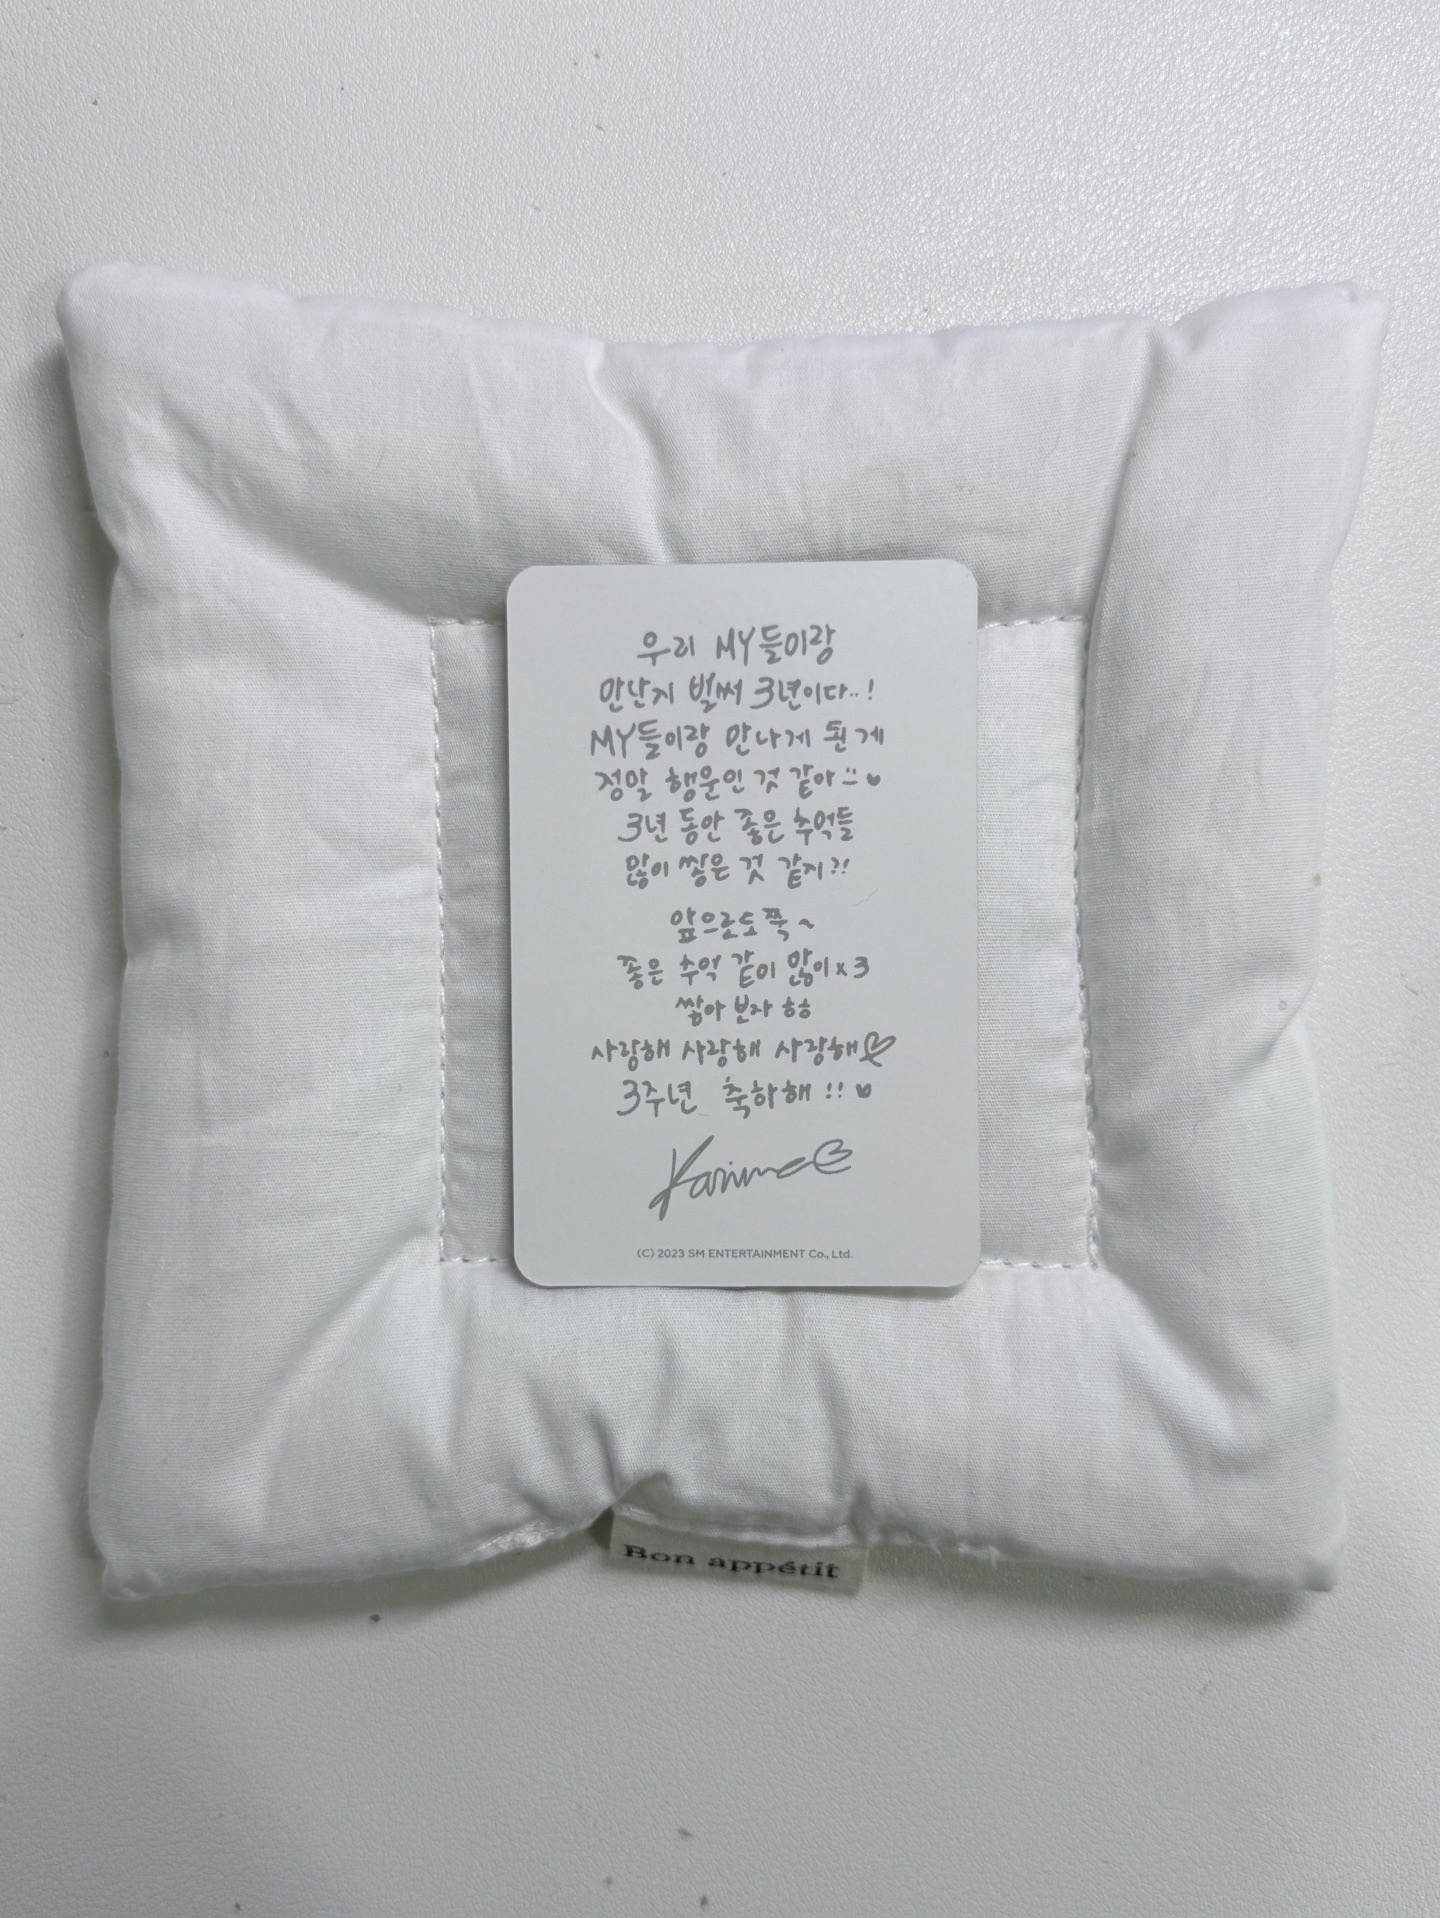 우리 MY들이랑
만난지 벌써 3년이다..!
MY들이랑 만나게 된 게
정말 행운인 것 같아 :: ♥
3년 동안 좋은 추억들
많이 쌓은 것 같지?!
앞으로도 쭉~
좋은 추억 같이 많이x3
쌓아 보자 ㅎㅎ
사랑해 사랑해 사랑해♡
3주년 축하해!! ♥
Karina
(C) 2023 SM ENTERTAINMENT Co., Ltd.
Bon appétit